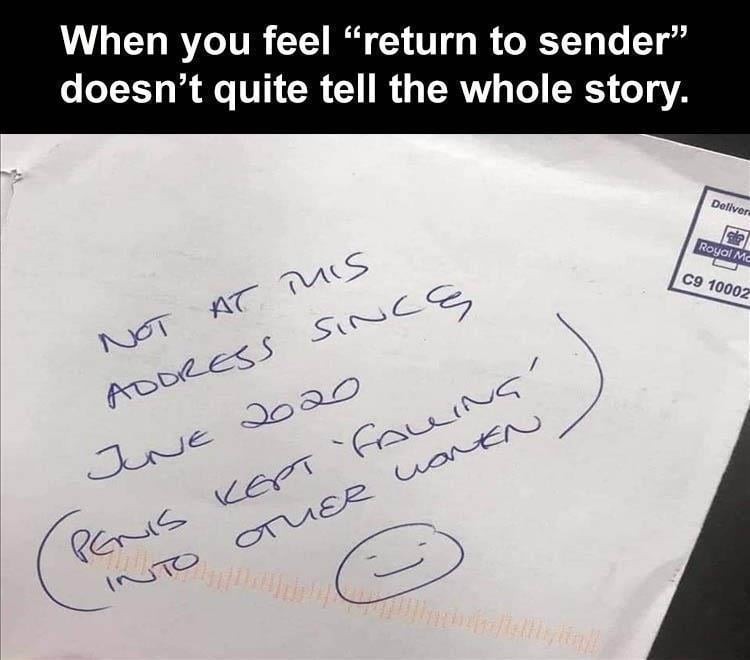 When you feel “return to sender”
doesn’t quite tell the whole story.
Deliver
Royal Ma
C9 10002
NOT AT THIS
ADDRESS SINCE
JUNE 2020
(PENIS KEPT ‘FALLING’
INTO OTHER WOMEN)